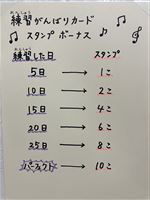 練習がんばりカード
スタンプ ボーナス
練習した日 スタンプ
5日 → 1こ
10日 → 2こ
15日 → 4こ
20日 → 6こ
25日 → 8こ
パーフェクト → 10こ